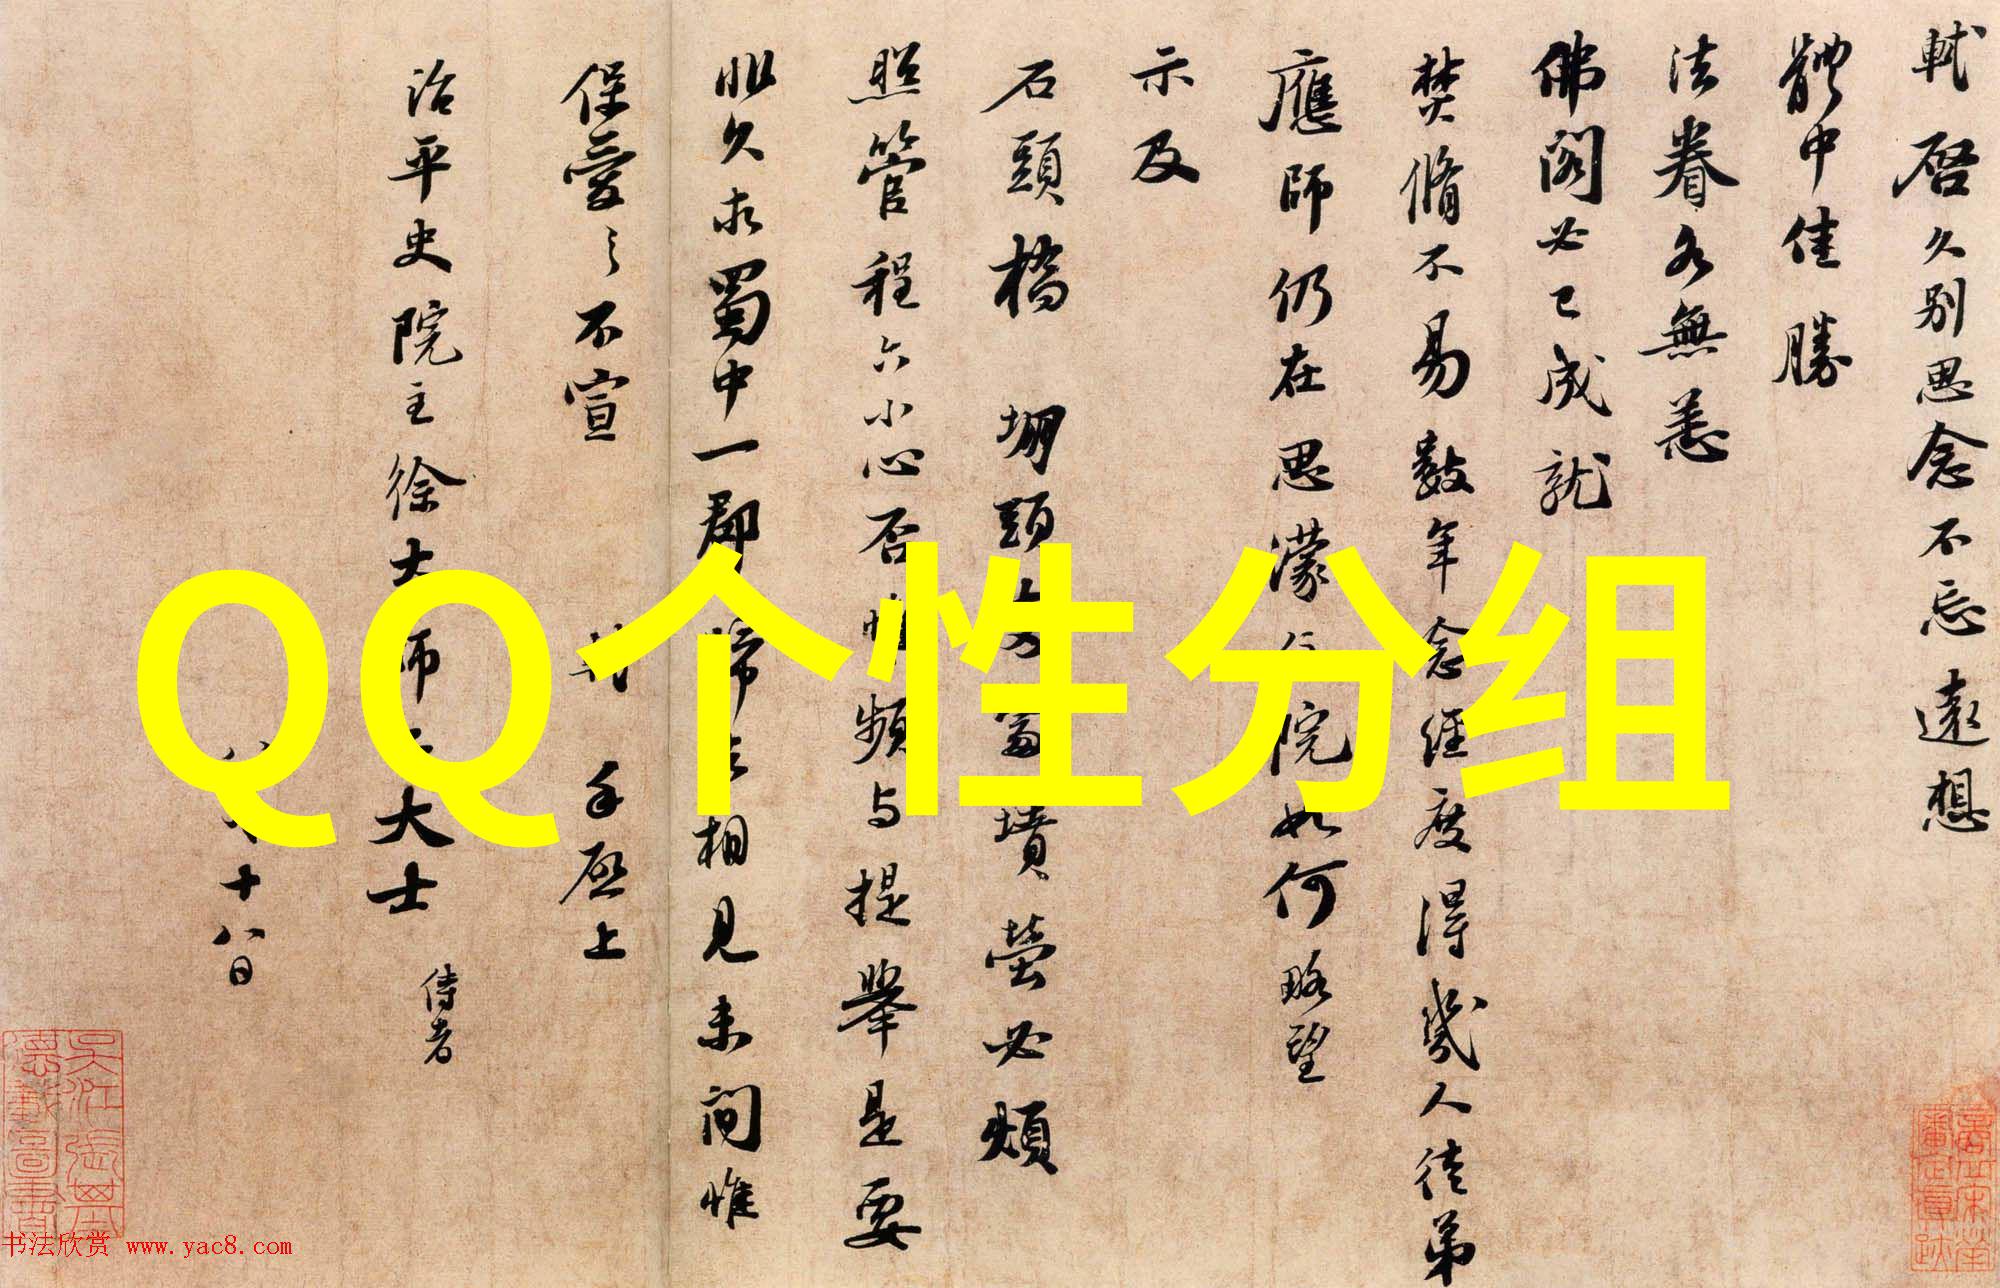 軾啓久别思念不忘遠想
體中佳勝
法眷各無恙
佛閣必已成就
焚脩不易數年念經度得幾人徒弟
應師仍在思濛住院如何略望
示及
石頭橋 堋頭兩處墳塋必煩
照管程六小心否惟頻與提舉是要
非久求蜀中一郡歸去相見未間惟
保愛之不宣 軾手啓上
治平史院主徐大師二大士 侍者
八月十八日
QQ个性分组
书法欣赏 www.yac8.com